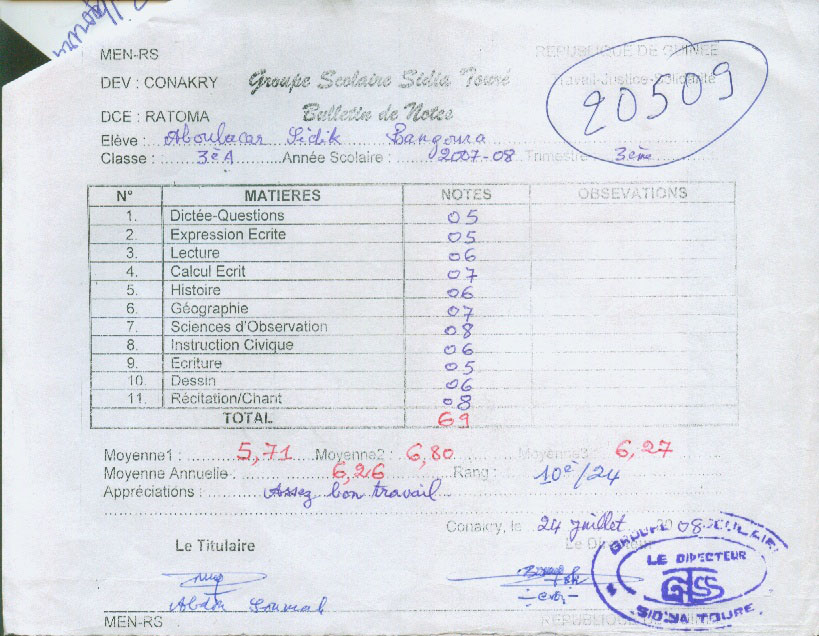 MEN-RS REPUBLIQUE DE GUINEE
DEV : CONAKRY Groupe Scolaire Sidia Touré Travail-Justice-Solidarité
20509
DCE : RATOMA Bulletin de Notes
Elève : Aboulacar Sidik Bangoura
Classe : 3è A Année Scolaire : 2007-08 Trimestre 3ème
N° MATIERES NOTES OBSEVATIONS
1. Dictée-Questions 05
2. Expression Ecrite 05
3. Lecture 06
4. Calcul Ecrit 07
5. Histoire 06
6. Géographie 07
7. Sciences d'Observation 08
8. Instruction Civique 06
9. Ecriture 05
10. Dessin 06
11. Récitation/Chant 08
TOTAL 69
Moyenne1 : 5,71 Moyenne2 : 6,80 Moyenne3 : 6,27
Moyenne Annuelle : 6,26 Rang : 10è/24
Appréciations : Assez bon travail
Conakry, le 24 juillet 2008
Le Titulaire Le Directeur
GROUPE SCOLAIRE
LE DIRECTEUR
GSS
SIDYA TOURE
MEN-RS REPUBLIQUE DE GUINEE